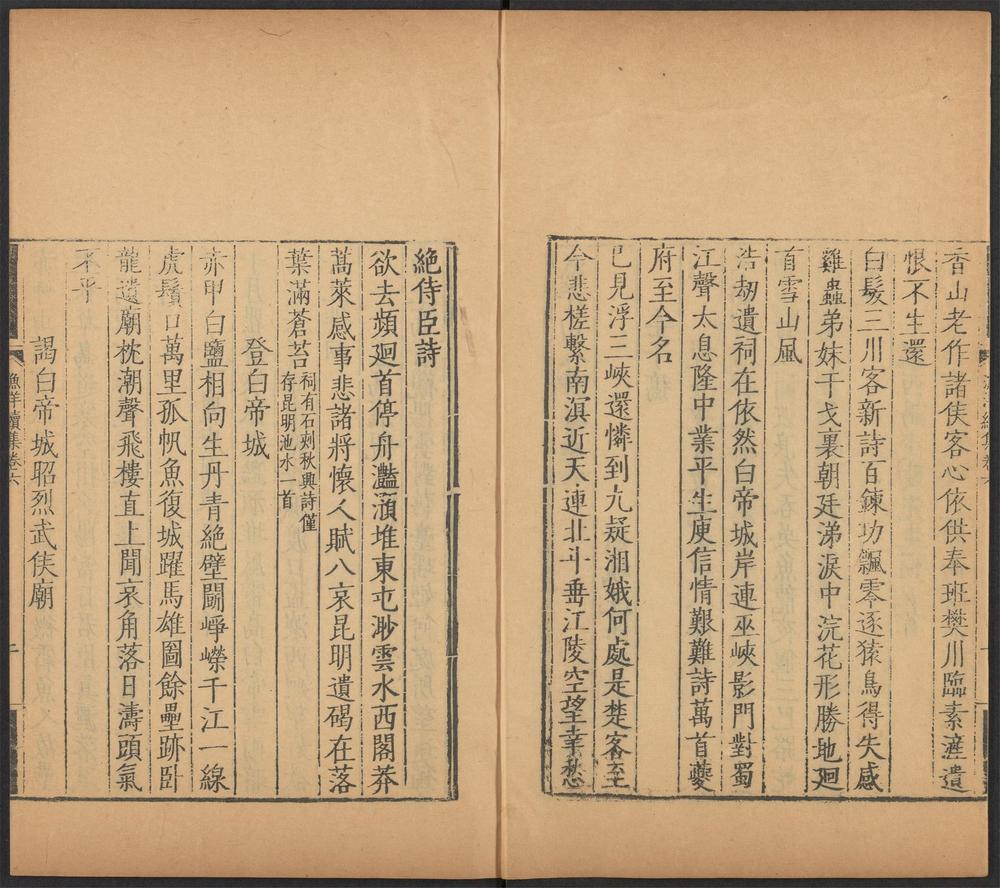 香山老作諸侯客心依供奉班樊川臨素滻遺
恨不生還
白髮三川客新詩百鍊功飄零逐猿鳥得失感
雞蟲弟妹干戈裏朝廷涕淚中浣花形勝地迴
首雪山風
浩劫遺祠在依然白帝城岸連巫峽影門對蜀
江聲太息隆中業平生庾信情艱難詩萬首夔
府至今名
已見浮三峽還憐到九疑湘娥何處是楚客至
今悲槎繫南溟近天連北斗垂江陵空望幸愁
絶侍臣詩
欲去頻廻首停舟灩澦堆東屯渺雲水西閣莽
蒿萊感事悲諸將懷人賦八哀昆明遺碣在落
葉滿蒼苔祠有石刻秋興詩僅
存昆明池水一首
登白帝城
赤甲白鹽相向生丹青絶壁鬭崢嶸千江一線
虎鬚口萬里孤帆魚復城躍馬雄圖餘壘跡臥
龍遺廟枕潮聲飛樓直上聞哀角落日濤頭氣
不平
謁白帝城昭烈武侯廟
漁洋續集卷六